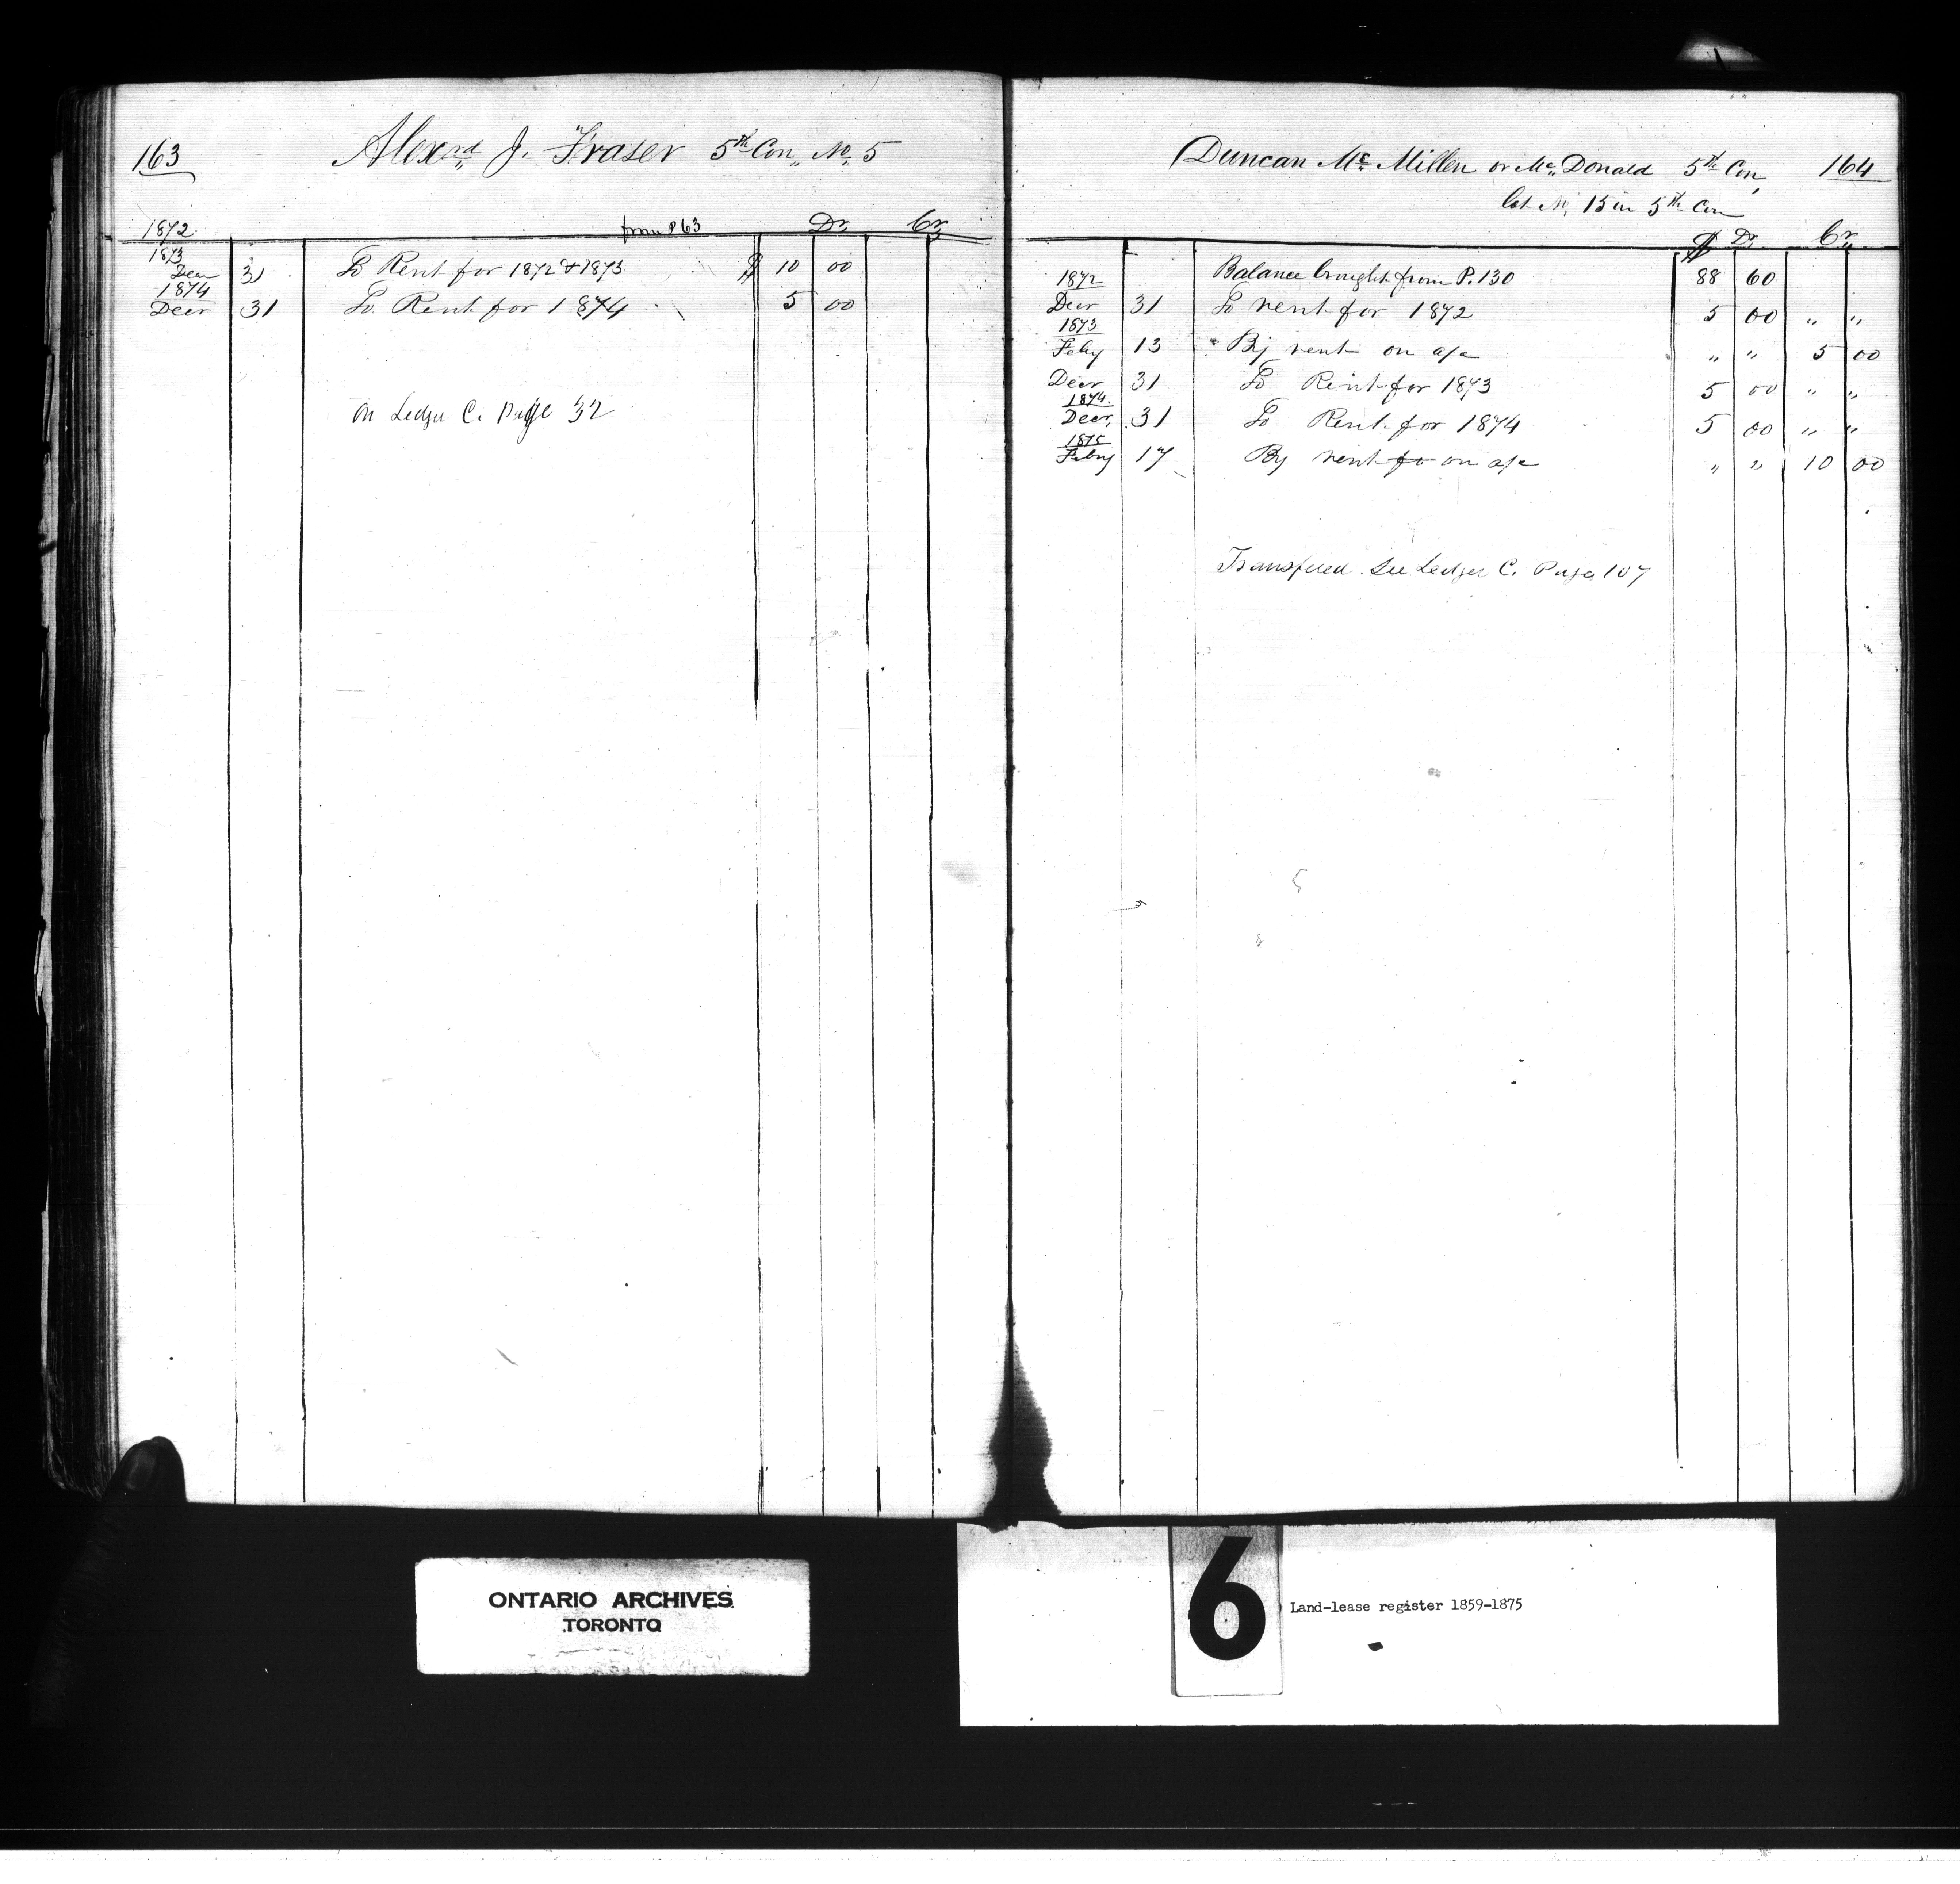 163 Alexnd J. Fraser 5th Con No 5
1872 from P 63 Dr Cr
1873
Decr 31 To Rent for 1872 & 1873 $ 10 00
1874
Decr 31 To Rent for 1874 5 00
on Ledger C. Page 32
Duncan Mc Millen or Mc Donald 5th Con 164
lot No 15 in 5th Con
$ Dr Cr
1872 Balance brought from P. 130 88 60
Decr 31 To rent for 1872 5 00 " "
1873
Feby 13 By rent on a/c " " 5 00
Decr 31 To Rent for 1873 5 00 " "
1874
Decr 31 To Rent for 1874 5 00 " "
1875
Feby 17 By rent fo on a/c " " 10 00
Transfered See Ledger C. Page 107
ONTARIO ARCHIVES
TORONTO
6
Land-lease register 1859-1875